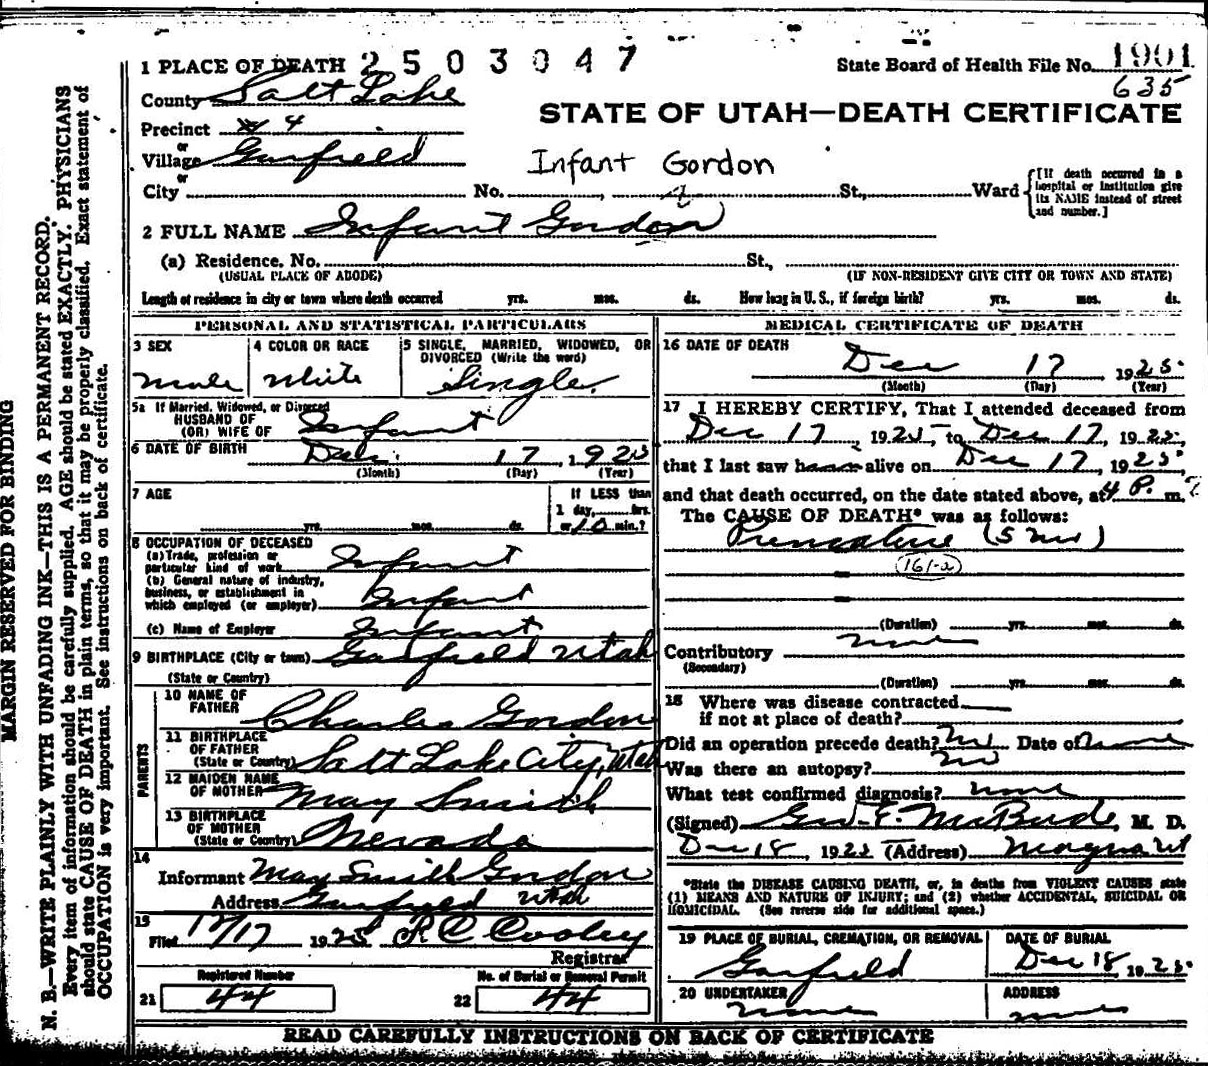 1 PLACE OF DEATH 2503047
State Board of Health File No. 1901
635
County Salt Lake
STATE OF UTAH—DEATH CERTIFICATE
Precinct 4
or
Village Garfield
Infant Gordon
or
City No. St., Ward
[If death occurred in a hospital or institution give its NAME instead of street and number.]
2 FULL NAME Infant Gordon
(a) Residence. No. St.,
(USUAL PLACE OF ABODE) (IF NON-RESIDENT GIVE CITY OR TOWN AND STATE)
Length of residence in city or town where death occurred yrs. mos. ds. How long in U. S., if foreign birth? yrs. mos. ds.
PERSONAL AND STATISTICAL PARTICULARS
3 SEX 4 COLOR OR RACE 5 SINGLE, MARRIED, WIDOWED, OR
DIVORCED (Write the word)
male white Single
5a If Married, Widowed, or Divorced
HUSBAND OF
(OR) WIFE OF Infant
6 DATE OF BIRTH Dec 17, 1925
(Month) (Day) (Year)
7 AGE If LESS than
1 day, hrs.
yrs. mos. ds. or 10 min.?
8 OCCUPATION OF DECEASED
(a) Trade, profession or
particular kind of work Infant
(b) General nature of industry,
business, or establishment in
which employed (or employer) Infant
(c) Name of Employer Infant
9 BIRTHPLACE (City or town) Garfield Utah
(State or Country)
PARENTS
10 NAME OF
FATHER Charles Gordon
11 BIRTHPLACE
OF FATHER
(State or Country) Salt Lake City, Utah
12 MAIDEN NAME
OF MOTHER May Smith
13 BIRTHPLACE
OF MOTHER
(State or Country) Nevada
14
Informant May Smith Gordon
Address Garfield Utah
15
Filed 12/17 1925 R C Cooley
Registrar
Registered Number No. of Burial or Removal Permit
21 44 22 44
MEDICAL CERTIFICATE OF DEATH
16 DATE OF DEATH
Dec 17 1925
(Month) (Day) (Year)
17 I HEREBY CERTIFY, That I attended deceased from
Dec 17, 1925, to Dec 17, 1925,
that I last saw h alive on Dec 17, 1925,
and that death occurred, on the date stated above, at 4 P. m.
The CAUSE OF DEATH* was as follows:
Premature (5 mo)
161-a
(Duration) yrs. mos. ds.
Contributory none
(Secondary)
(Duration) yrs. mos. ds.
18 Where was disease contracted
if not at place of death?
Did an operation precede death? no Date of none
Was there an autopsy? no
What test confirmed diagnosis? none
(Signed) Geo. E. McBride, M. D.
Dec 18, 1925 (Address) Magna Ut
*State the DISEASE CAUSING DEATH, or, in deaths from VIOLENT CAUSES state
(1) MEANS AND NATURE OF INJURY; and (2) whether ACCIDENTAL, SUICIDAL OR
HOMICIDAL. (See reverse side for additional space.)
19 PLACE OF BURIAL, CREMATION, OR REMOVAL DATE OF BURIAL
Garfield Dec 18, 1925
20 UNDERTAKER ADDRESS
none none
READ CAREFULLY INSTRUCTIONS ON BACK OF CERTIFICATE
MARGIN RESERVED FOR BINDING
N. B.—WRITE PLAINLY WITH UNFADING INK—THIS IS A PERMANENT RECORD.
Every item of information should be carefully supplied. AGE should be stated EXACTLY. PHYSICIANS
should state CAUSE OF DEATH in plain terms, so that it may be properly classified. Exact statement of
OCCUPATION is very important. See instructions on back of certificate.